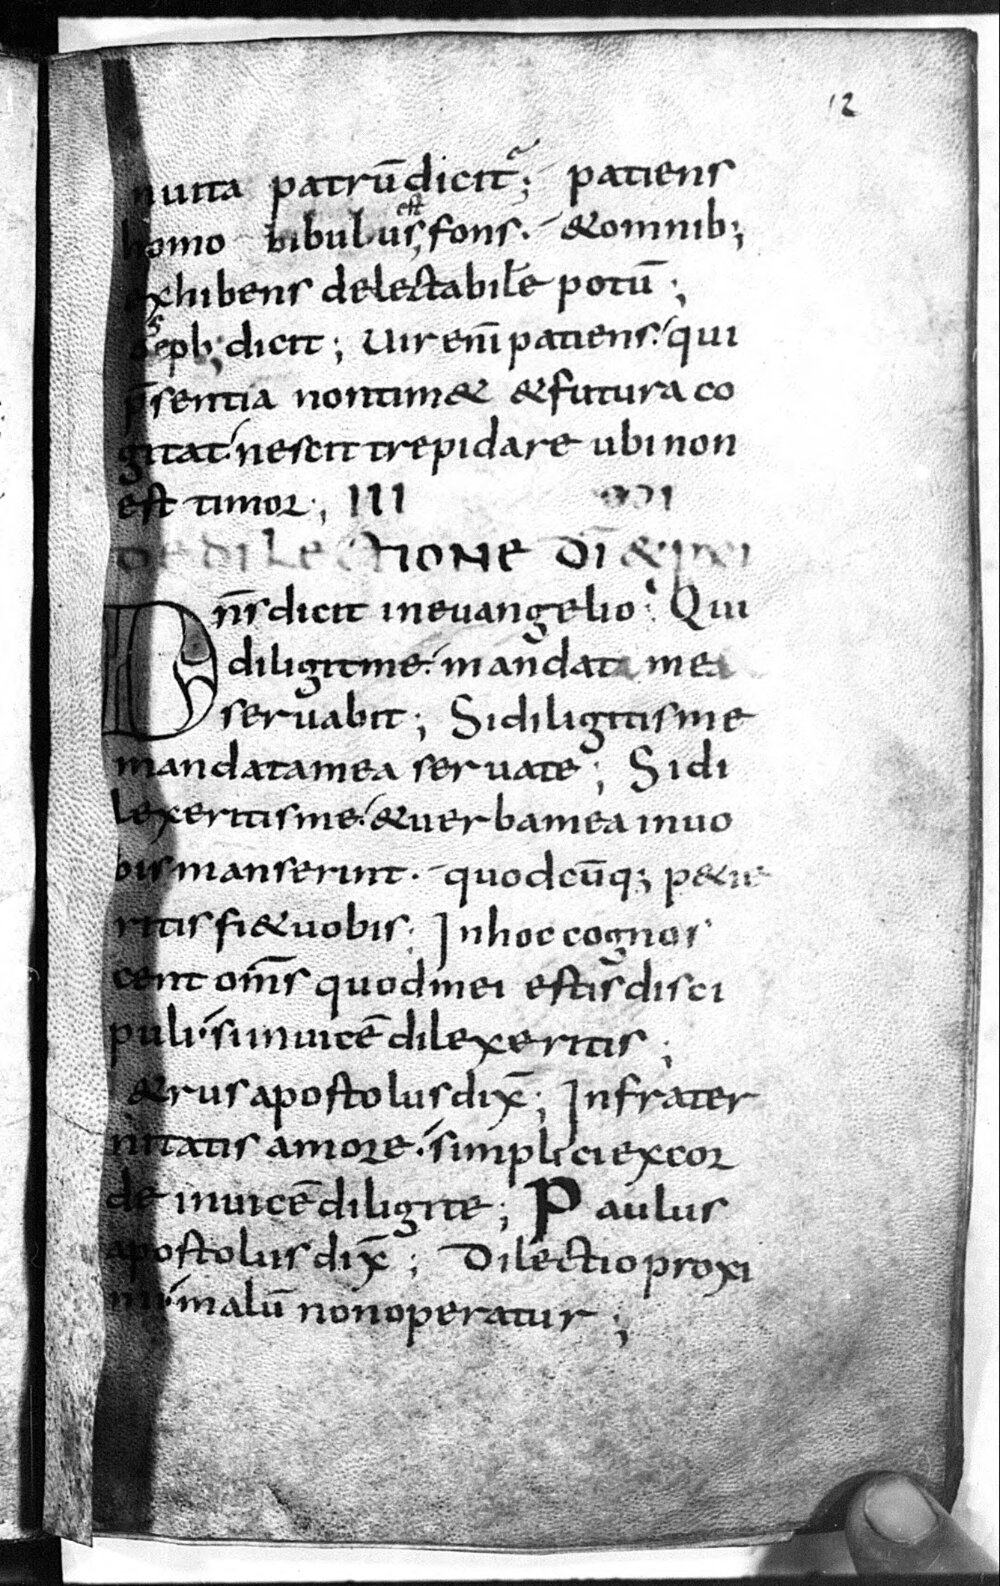 12
nuita patrū dicit᷑; patiens
homo bibulus, est fons. &omnib;
exhibens delectabilē potū;
dicit; Uir enī patiens. qui
p̄sentia non tim& & futura co
gitat. nescit trepidare ubi non
est timor; III
DE DILECTIONE DĪ & PXI
Dn̄s dicit in euangelio. Qui
diligit me. mandata mea
seruabit; Si diligitis me
mandata mea seruate; Si di
lexeritis me. & uerba mea in uo
bis manserint. quodcūq; p&ie
ritis fi& uobis. In hoc cognos
cent om̄s quod mei estis disci
puli. si inuicē dilexeritis;
&rus apostolus dix̄; In frater
nitatis amore. simplici ex cor
de inuicē diligite; Paulus
apostolus dix̄; Dilectio proxi
mi. malū non operatur;